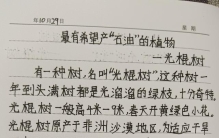 年10月29日 星期
最有希望产“石油”的植物
—光棍树
有一种树,名叫“光棍树”,这种树一
年到头满树都是光溜溜的绿枝,十分奇特。
光棍树一般高4米—9米,春天开黄绿色小花,
光棍树原产于非洲沙漠地区,为适应干旱